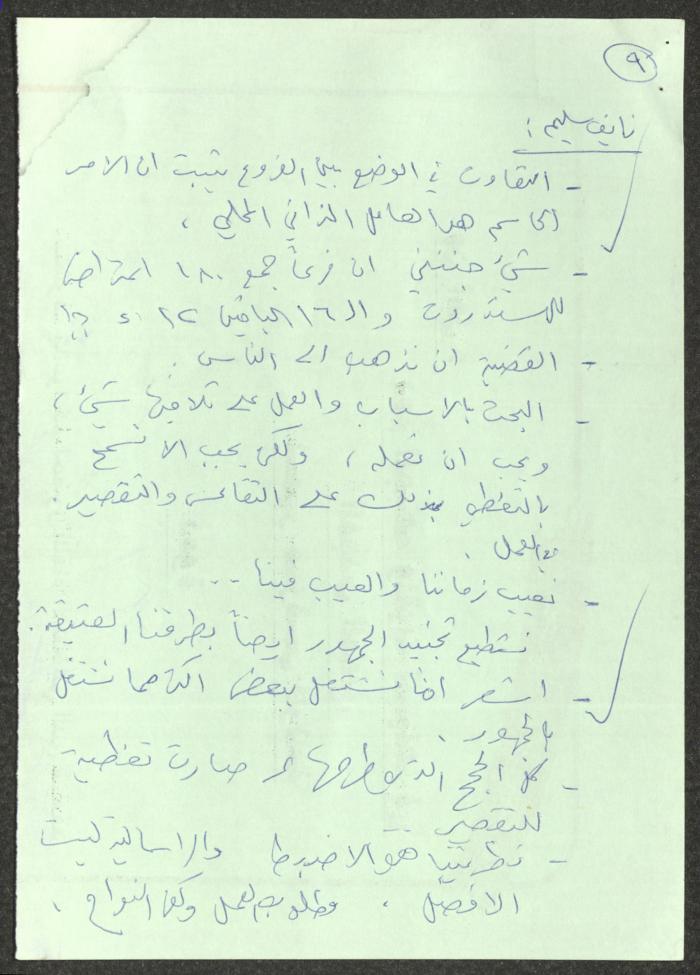 ٩
نايف سليم :
- التفاوت في الوضع بين الفروع يثبت ان الامر
الحاسم هو العامل الذاتي المحلي ،
- شيء جنني ان فرعاً جمع ١٨٠
للهستدروت والـ ١٦ الباقين ١٢٠٤ !؟
- القضية ان نذهب الى الناس .
- البحث بالاسباب والعمل على تلافيها شيء ،
ويجب ان نعمله ، ولكن يجب الا نسمح
بالتغطي بذلك على التقاعس والتقصير
بالعمل .
- نعيب زماننا والعيب فينا ..
نستطيع تجنيد الجمهور ايضاً بطرقنا العتيقة .
- اشعر اننا نشتغل ببعض اكثر مما نشتغل
بالجمهور .
- كل الحجج التي طرحها صارت تغطية
للتقصير
- نظريتنا هي الاضبط والراسمالية ليست
الافضل ، العمل وكفى النواح .